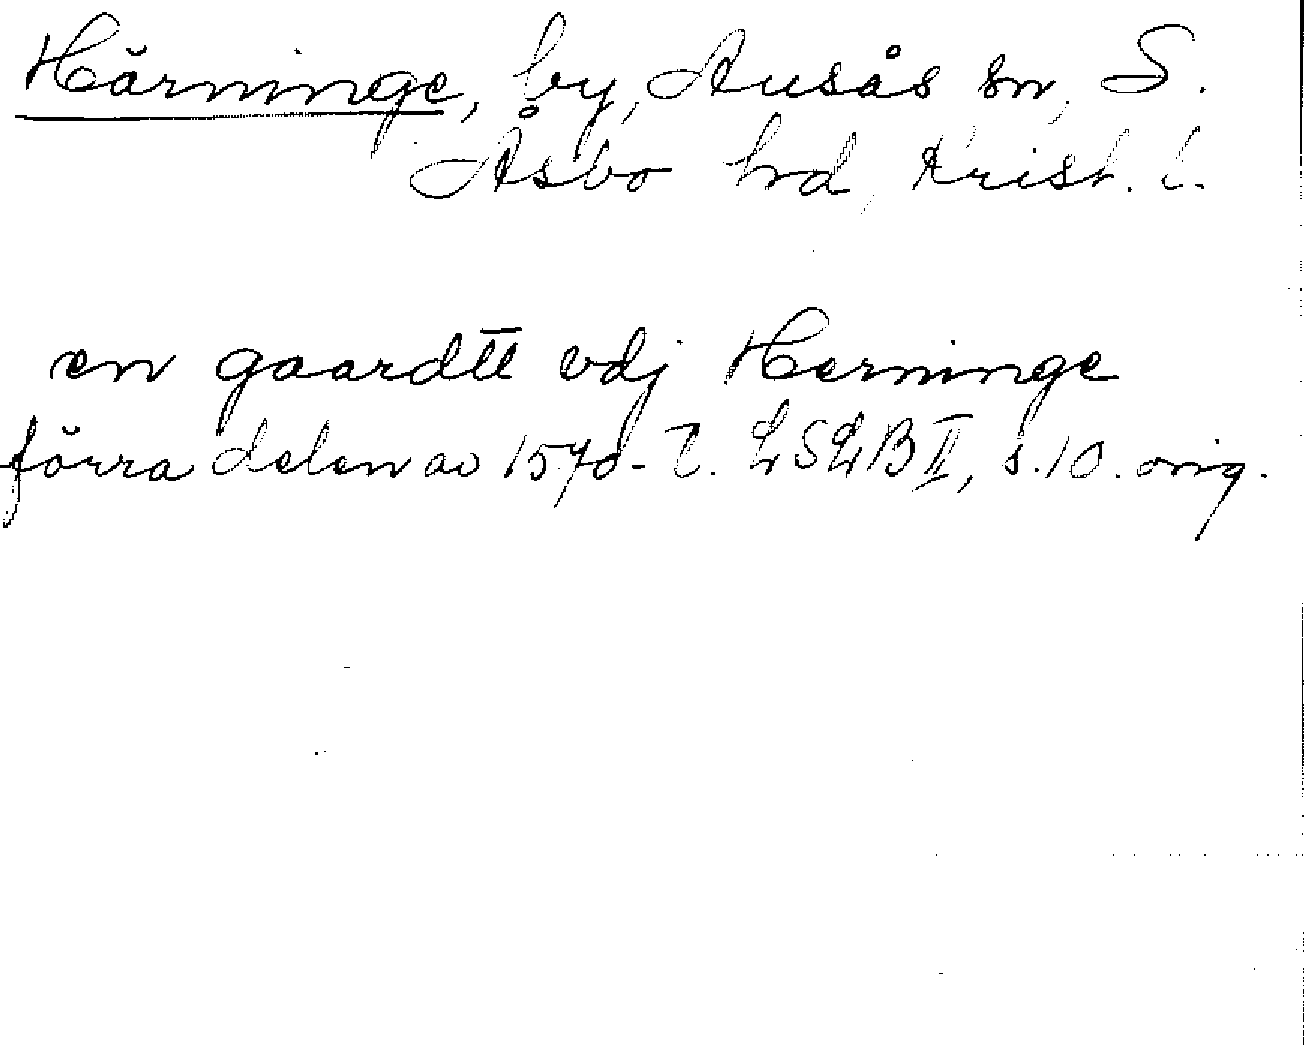 Härninge, by, Ausås sn, S.
Åsbo hrd, Krist. l.
en gaardtt vdj Herninge
förra delen av 1570-t. LSLB II, s. 10. orig.